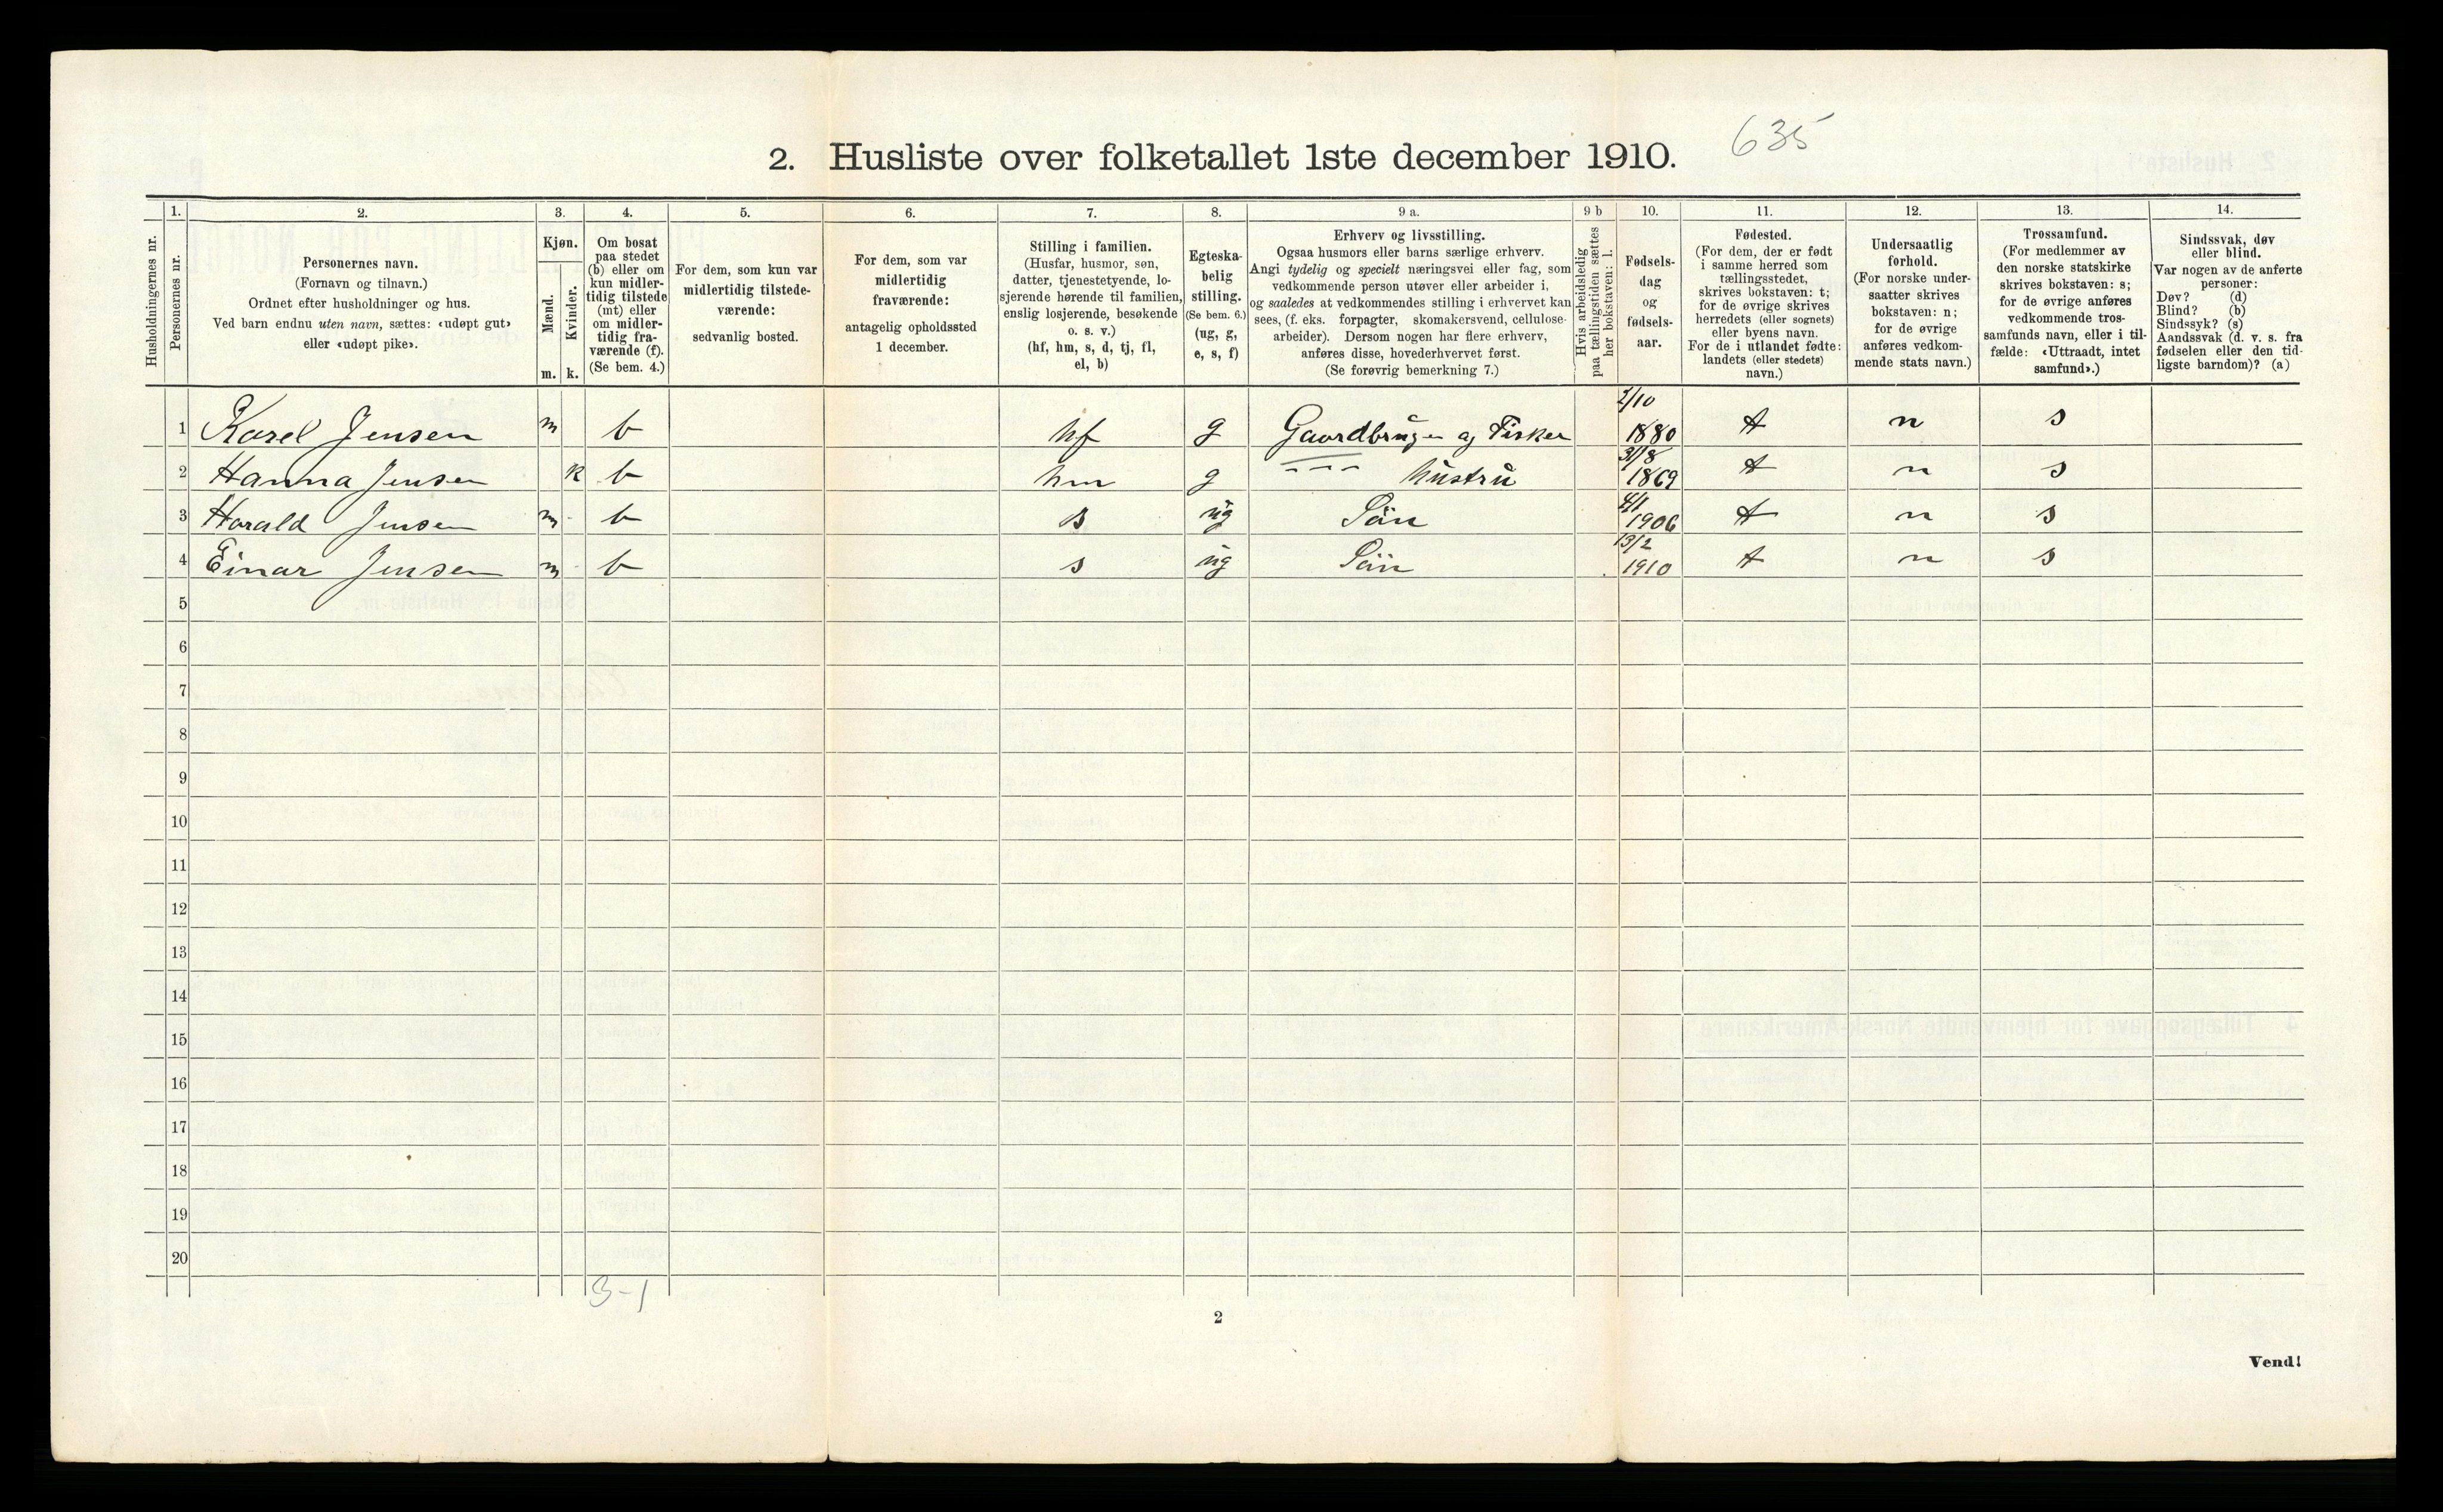 635
2. Husliste over folketallet 1ste december 1910.
Husholdningernes nr.
1.
Personernes nr.
2.
Personernes navn.
(Fornavn og tilnavn.)
Ordnet efter husholdninger og hus.
Ved barn endnu uten navn, sættes: «udøpt gut»
eller «udøpt pike».
3.
Kjøn.
Mænd.
Kvinder.
m.
k.
4.
Om bosat
paa stedet
(b) eller om
kun midler-
tidig tilstede
(mt) eller
om midler-
tidig fra-
værende (f).
(Se bem. 4.)
5.
For dem, som kun var
midlertidig tilstede-
værende:
sedvanlig bosted.
6.
For dem, som var
midlertidig
fraværende:
antagelig opholdssted
1 december.
7.
Stilling i familien.
(Husfar, husmor, søn,
datter, tjenestetyende, lo-
sjerende hørende til familien,
enslig losjerende, besøkende
o. s. v.)
(hf, hm, s, d, tj, fl,
el, b)
8.
Egteska-
belig
stilling.
(Se bem. 6.)
(ug, g,
e, s, f)
9 a.
Erhverv og livsstilling.
Ogsaa husmors eller barns særlige erhverv.
Angi tydelig og specielt næringsvei eller fag, som
vedkommende person utøver eller arbeider i,
og saaledes at vedkommendes stilling i erhvervet kan
sees, (f. eks. forpagter, skomakersvend, cellulose-
arbeider). Dersom nogen har flere erhverv,
anføres disse, hovederhvervet først.
(Se forøvrig bemerkning 7.)
9 b
Hvis arbeidsledig
paa tællingstiden sættes
her bokstaven: l.
10.
Fødsels-
dag
og
fødsels-
aar.
11.
Fødested.
(For dem, der er født
i samme herred som
tællingsstedet,
skrives bokstaven: t;
for de øvrige skrives
herredets (eller sognets)
eller byens navn.
For de i utlandet fødte:
landets (eller stedets)
navn.)
12.
Undersaatlig
forhold.
(For norske under-
saatter skrives
bokstaven: n;
for de øvrige
anføres vedkom-
mende stats navn.)
13.
Trossamfund.
(For medlemmer av
den norske statskirke
skrives bokstaven: s;
for de øvrige anføres
vedkommende tros-
samfunds navn, eller i til-
fælde: «Uttraadt, intet
samfund».)
14.
Sindssvak, døv
eller blind.
Var nogen av de anførte
personer:
Døv? (d)
Blind? (b)
Sindssyk? (s)
Aandssvak (d. v. s. fra
fødselen eller den tid-
ligste barndom)? (a)
1 Karel Jensen m b hf g Gaardbruger og Fisker 2/10 1880 t n s
2 Hanna Jensen k b hm g --- hustru 31/8 1869 t n s
3 Harald Jensen m b s ug Sön 4/1 1906 t n s
4 Einar Jensen m b s ug Sön 13/2 1910 t n s
5
6
7
8
9
10
11
12
13
14
15
16
17
18
19
20
3-1
2
Vend!